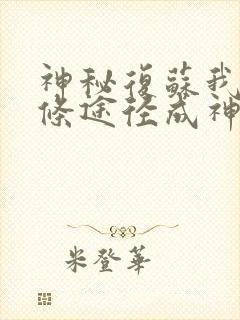 神秘復蘇我
條途徑成神
米登華